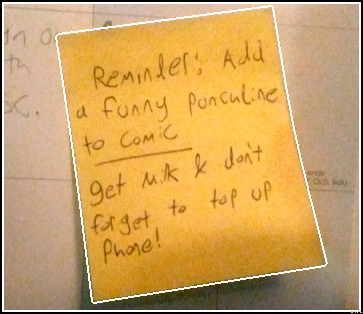 in o
th
oc.
Reminder: Add
a funny punchline
to comic
get milk & don't
forget to top up
Phone!